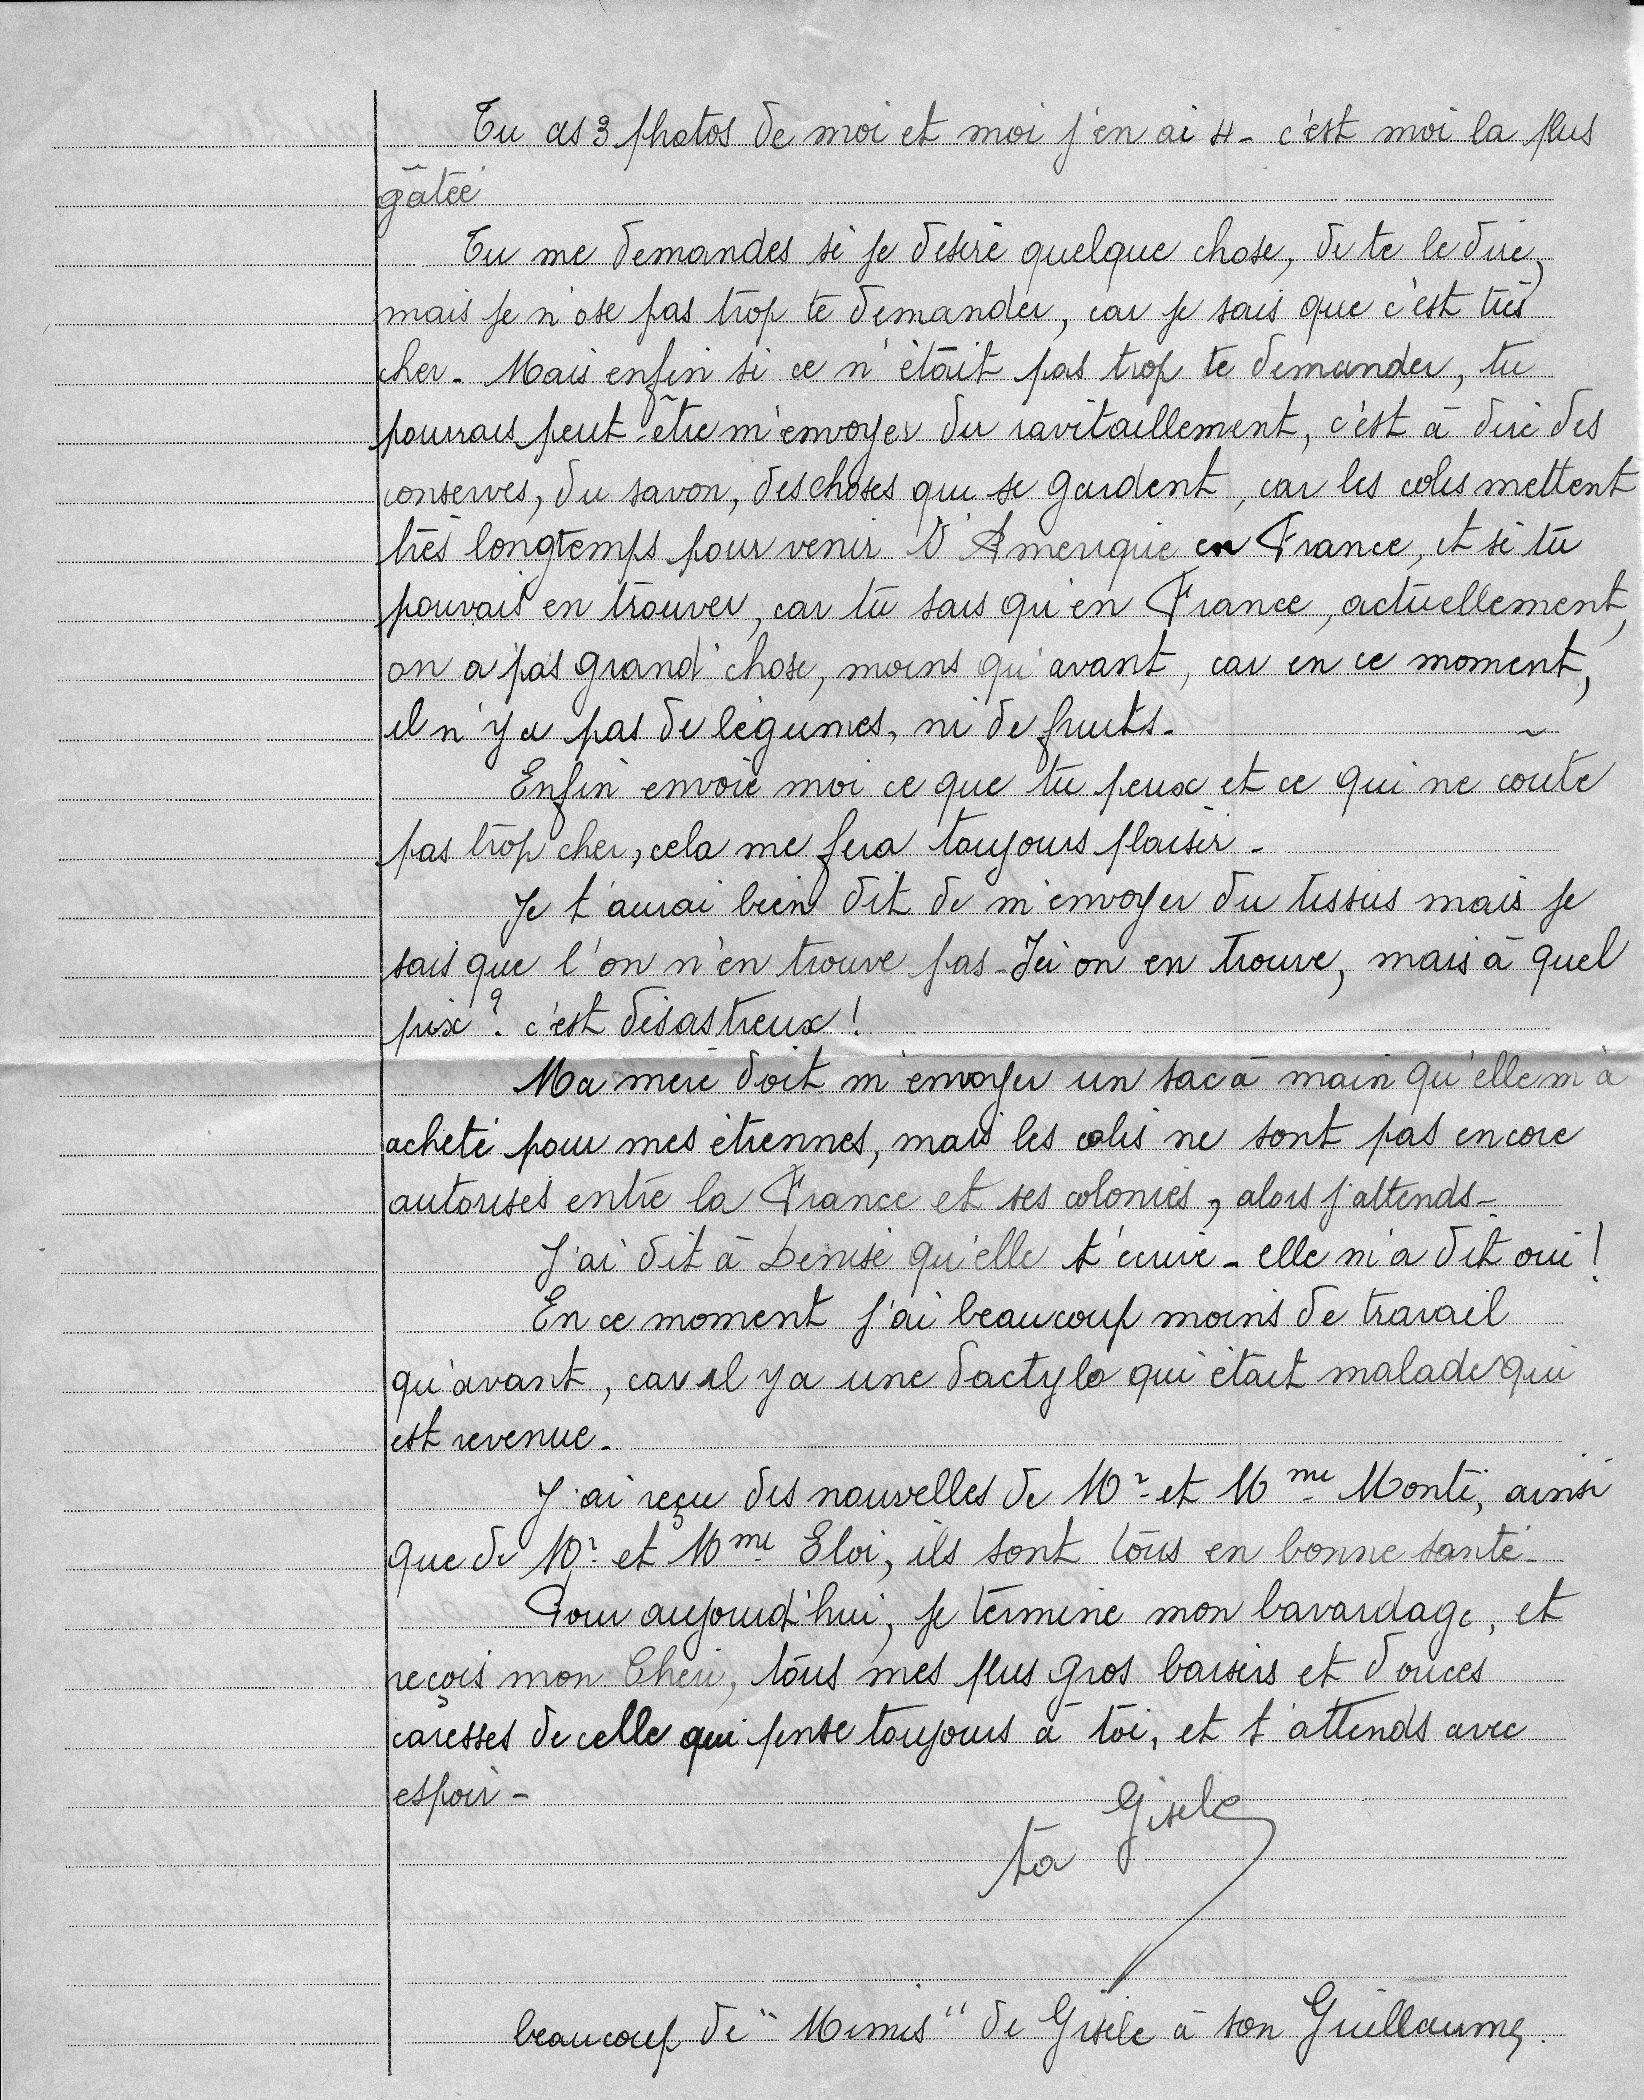 Tu as 3 photos de moi et moi j'en ai 4 - c'est moi la plus
gâtée
Tu me demandes si je désire quelque chose, de te le dire,
mais je n'ose pas trop te demander, car je sais que c'est très
cher - Mais enfin si ce n'était pas trop te demander, tu
pourrais peut-être m'envoyer du ravitaillement, c'est à dire des
conserves, du savon, des choses qui se gardent, car les colis mettent
très longtemps pour venir d'Amérique en France, et si tu
pouvais en trouver, car tu sais qu'en France, actuellement,
on a pas grand'chose, moins qu'avant, car en ce moment,
il n'y a pas de légumes, ni de fruits -
Enfin envoie moi ce que tu peux et ce qui ne coûte
pas trop cher, cela me fera toujours plaisir -
Je t'aurai bien dit de m'envoyer du tissus mais je
sais que l'on n'en trouve pas - Ici on en trouve, mais à quel
prix ? c'est désastreux !
Ma mère doit m'envoyer un sac à main qu'elle m'à
acheté pour mes étrennes, mais les colis ne sont pas encore
autorisés entre la France et ses colonies, alors j'attends -
J'ai dit à Denise qu'elle t'écrive - elle m'a dit oui !
En ce moment j'ai beaucoup moins de travail
qu'avant, car il y a une dactylo qui était malade qui
est revenue -
J'ai reçu des nouvelles de Mr et Mme Monti, ainsi
que de Mr et Mme Eloi, ils sont tous en bonne santé -
Pour aujourd'hui, je termine mon bavardage, et
reçois mon Chéri, tous mes plus gros baisers et douces
caresses de celle qui pense toujours à toi, et t'attends avec
espoir -
ta Gisèle
beaucoup de "Mimis" de Gisèle à son Guillaume.